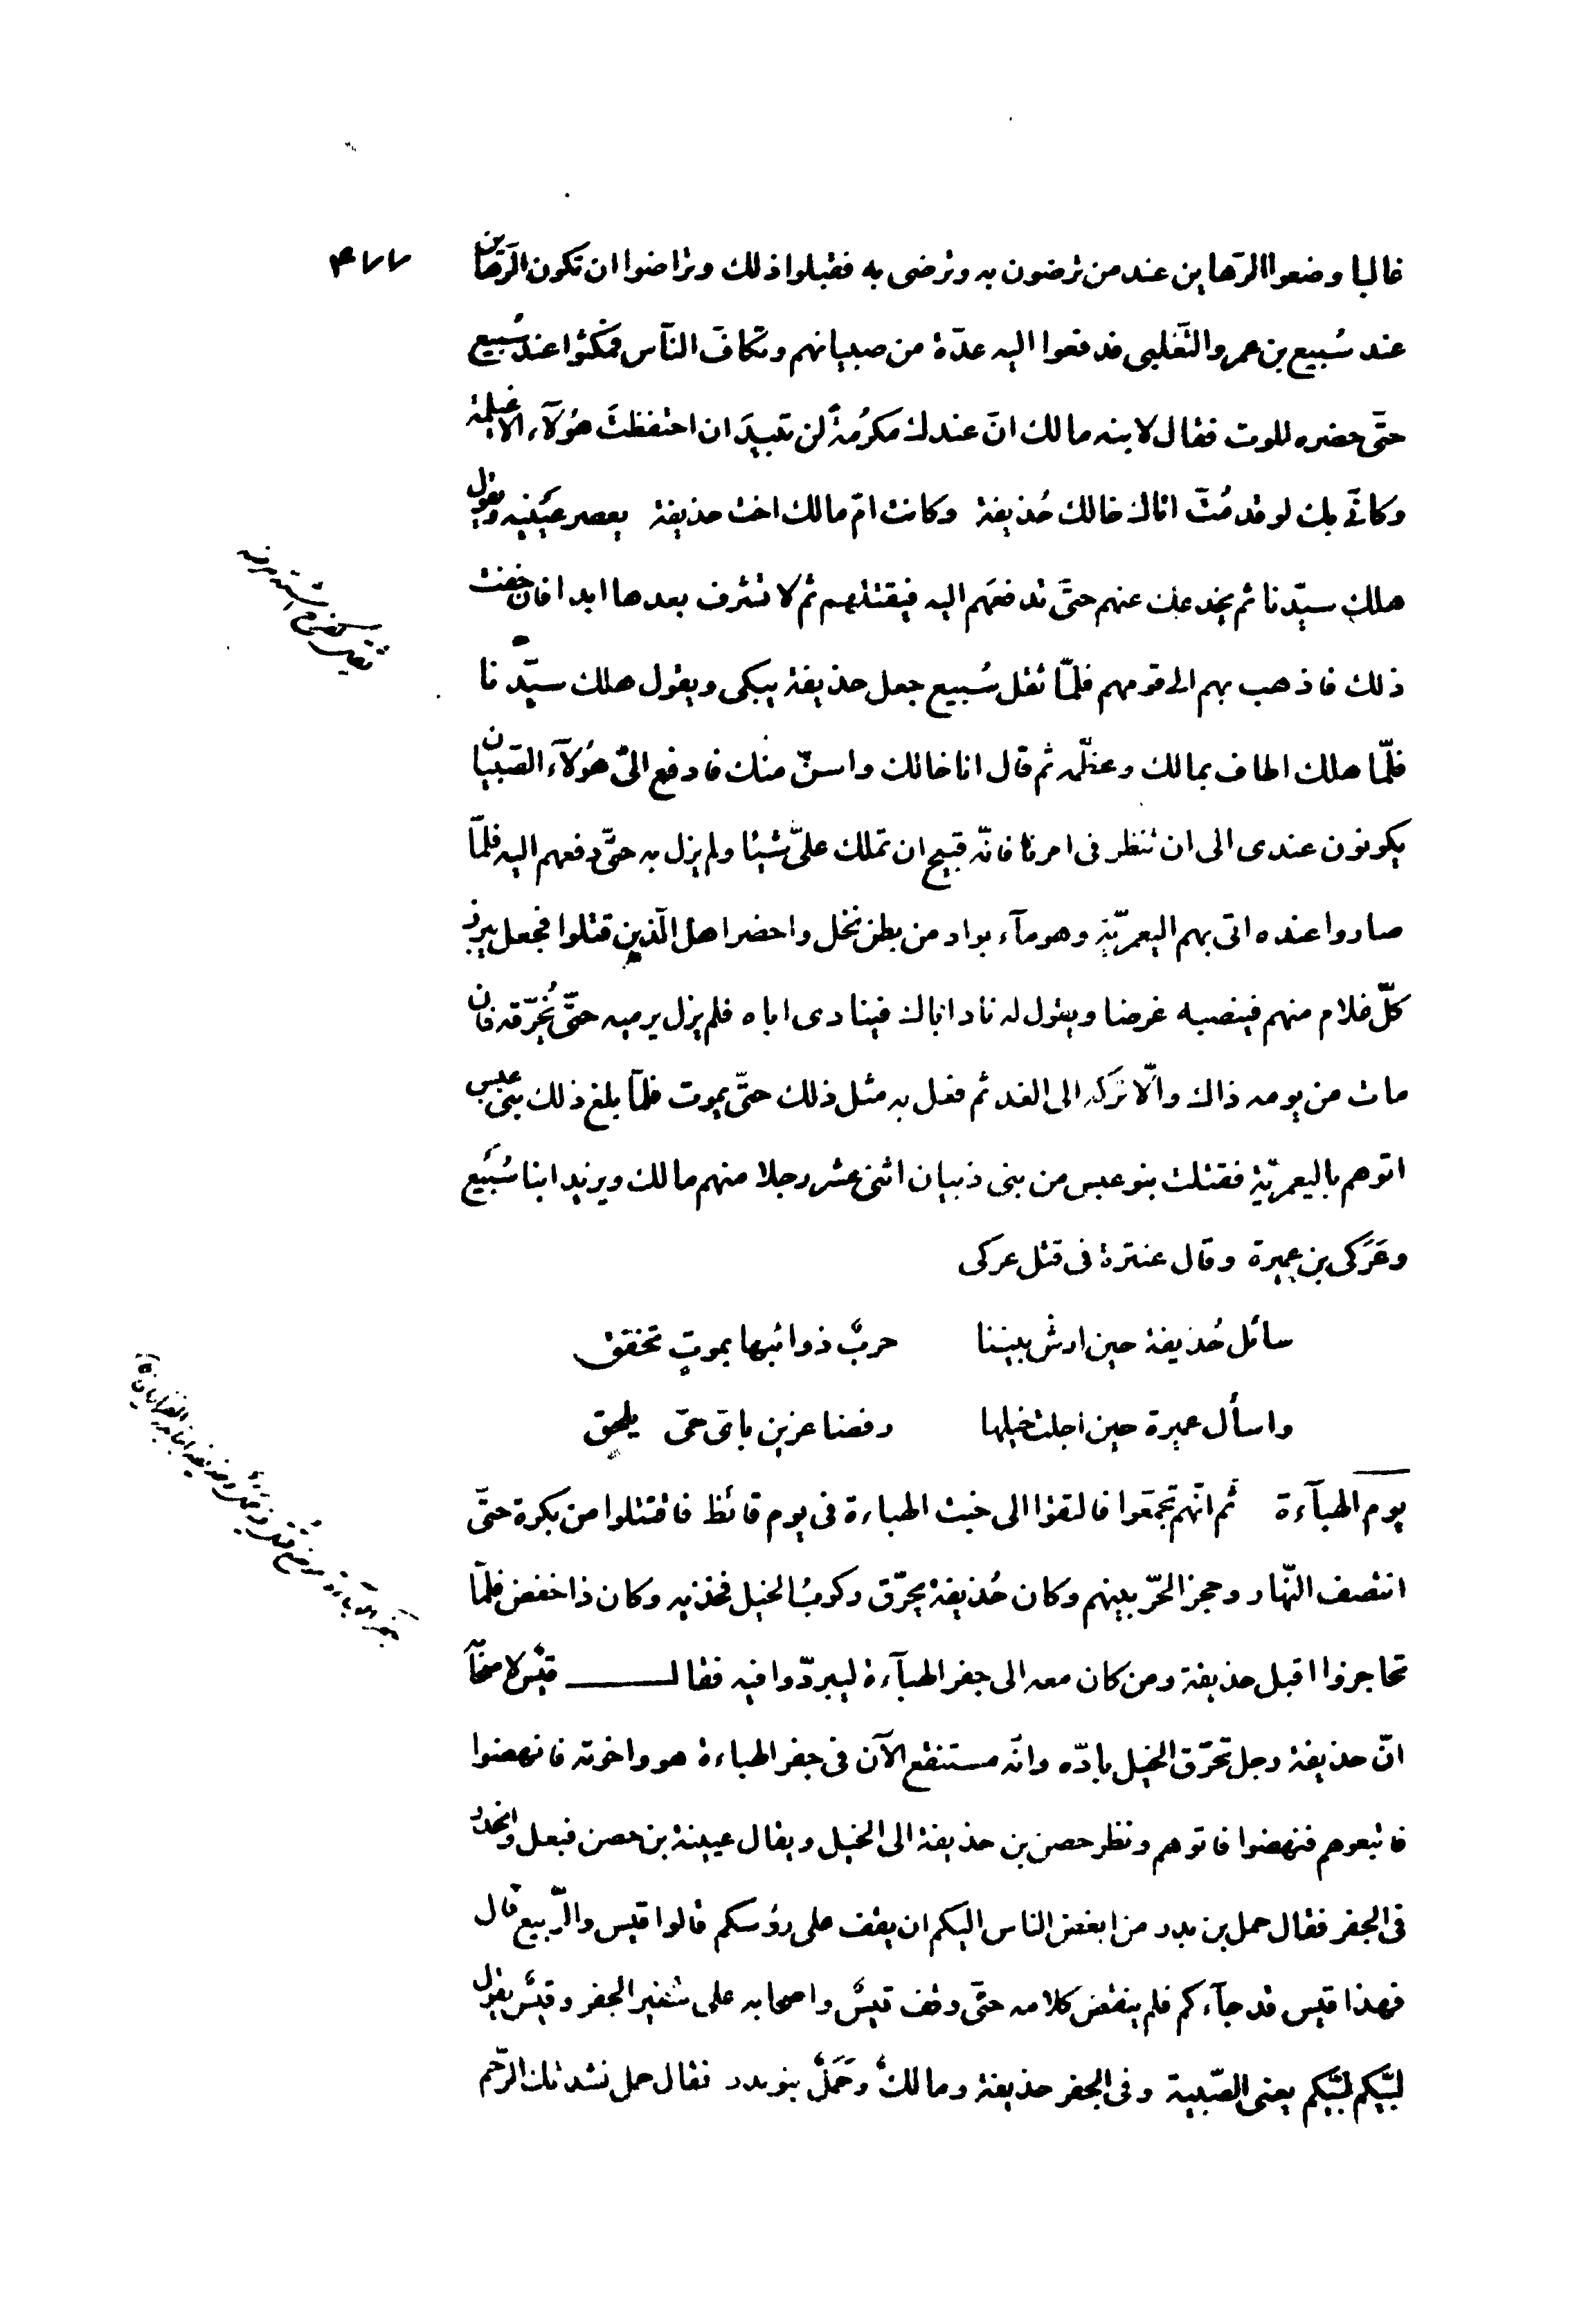 ٤٧٧
غالبا وضعوا الرّهاين عند من ترضون به ونرضى به فقبلوا ذلك وتراضوا ان تكون الرّهاين
عند سُبيع بن عمرو الثّعلبى فدفعوا اليه عدّة من صبيانهم وتكافّ النّاس فمكثوا عند سُبيع
حتّى حضره الموت فقال لابنه مالك انّ عندك مكرُمةً لن تبيدَ ان احتفظتَ هؤلآء الاغيلمة
وكانّى بك لو قد مُتّ اتاك خالك حُذيفة وكانت امّ مالك اخت حذيفة يعصر عَينيه ويقول
هلك سيّدنا ثم يخدعك عنهم حتّى تدفعَهم اليه فيقتلهم ثم لا تشرف بعدها ابدا فان خفت
ذلك فاذهب بهم الى قومهم فلمّا ثقل سُبيع جعل حذيفة يبكى ويقول هلك سيّدنا
فلمّا هلك اطاف بمالك وعظّمه ثم قال انا خالك واسنّ منك فادفع الىّ هؤلآء الصّبيان
يكونون عندى الى ان ننظر فى امرنا فانّه قبيح ان تملك علىّ شيئا ولم يزل به حتّى دفعهم اليه فلمّا
صاروا عنده اتى بهم اليعمريّة وهو مآء بواد من بطن نخل واحضر اهل الّذين قتلوا فجعل يبرز
كلّ غلام منهم فينصبه غرضا ويقول له ناد اباك فينادى اباه فلم يزل يرميه حتّى يُخرّقه فان
مات من يومه ذاك والّا تركه الى الغد ثم فعل به مثل ذلك حتّى يموت فلمّا بلغ ذلك بنى عبس
اتوهم باليعمريّة فقتلت بنو عبس من بنى ذبيان اثنى عشر رجلا منهم مالك ويزيد ابنا سُبَيع
وعَرَكى بن عميرة وقال عنترة فى قتل عركى
سائل حُذيفة حين ارش بيننا حربٌ ذوائبها بموتٍ تخفق
واسأل عميرة حين اجلت خيلها رفضا عزين باىّ حىّ يلحق
يوم الهبآءة ثم انّهم تجمّعوا فالتقوا الى خبث الهباءة فى يوم قائظ فاقتتلوا من بكرة حتّى
انتصف النّهار وحجز الحرّ بينهم وكان حُذيفة يحرّق ركوبُ الخيل فخذيه وكان ذا خفض فلمّا
تحاجزوا اقبل حذيفة ومن كان معه الى جفر الهبآءة ليبردّوا فيه فقال قيس لاصحابه
انّ حذيفة رجل تحرّق الخيل بادّه وانّه مستنقع الآن فى جفر الهباءة هو واخوته فانهضوا
فاتبعوهم فنهضوا فاتوهم ونظر حصن بن حذيفة الى الخيل ويقال عيينة بن حصن فبعل وانحدر
فى الجفر فقال حمل بن بدر من ابغض الناس اليكم ان يقف على رؤسكم قالوا قيس والرّبيع قال
فهذا قيس قد جآءكم فلم ينقض كلامه حتّى وقف قيسٌ واصحابه على شفير الجفر وقيسٌ يقول
لبّيكم لبّيكم يعنى الصّبية وفى الجفر حذيفة ومالكٌ وحَمَلٌ بنو بدر فقال حمل نشدتك الرّحم